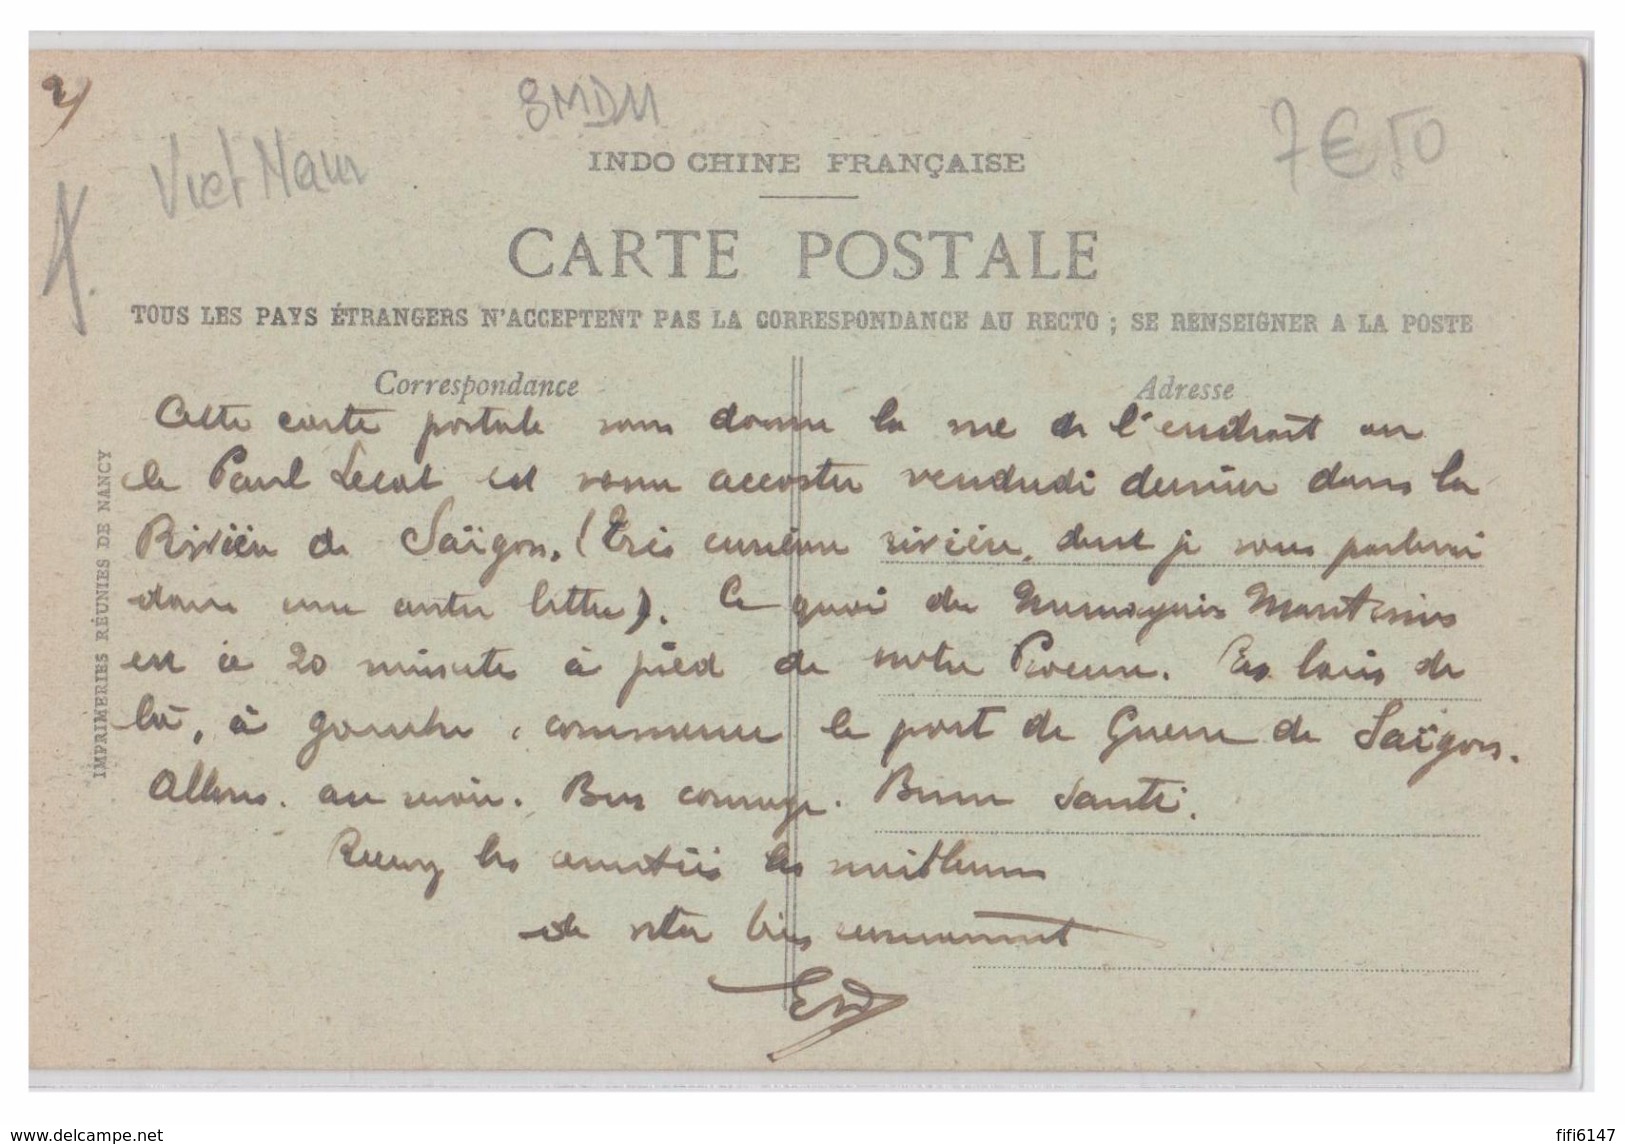 2)
Viet Nam
8MDM
7€50
INDO CHINE FRANÇAISE
CARTE POSTALE
TOUS LES PAYS ÉTRANGERS N'ACCEPTENT PAS LA CORRESPONDANCE AU RECTO ; SE RENSEIGNER A LA POSTE
Correspondance
Adresse
IMPRIMERIES RÉUNIES DE NANCY
Cette carte postale vous donne la vue de l'endroit ou
le Paul Lecat est venu accoster vendredi dernier dans la
Rivière de Saïgon. (Très curieuse rivière, dont je vous parlerai
dans une autre lettre). Ce quai des Messageries Maritimes
est à 20 minutes à pied de notre Procure. Pas loin de
là, à gauche, commence le port de Guerre de Saïgon.
Allons. au revoir. Bon courage. Bonne Santé.
Recevez les amitiés les meilleures
de votre bien
www.delcampe.net
fifi6147